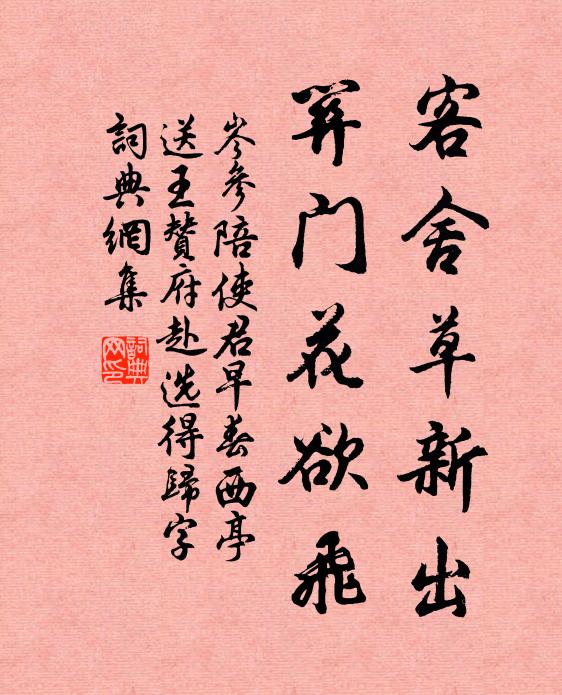 客舍草新出
關門花欲飛
岑參陪使君早春西亭
送王贊府赴選得歸字
詞典網集
詞典
网印